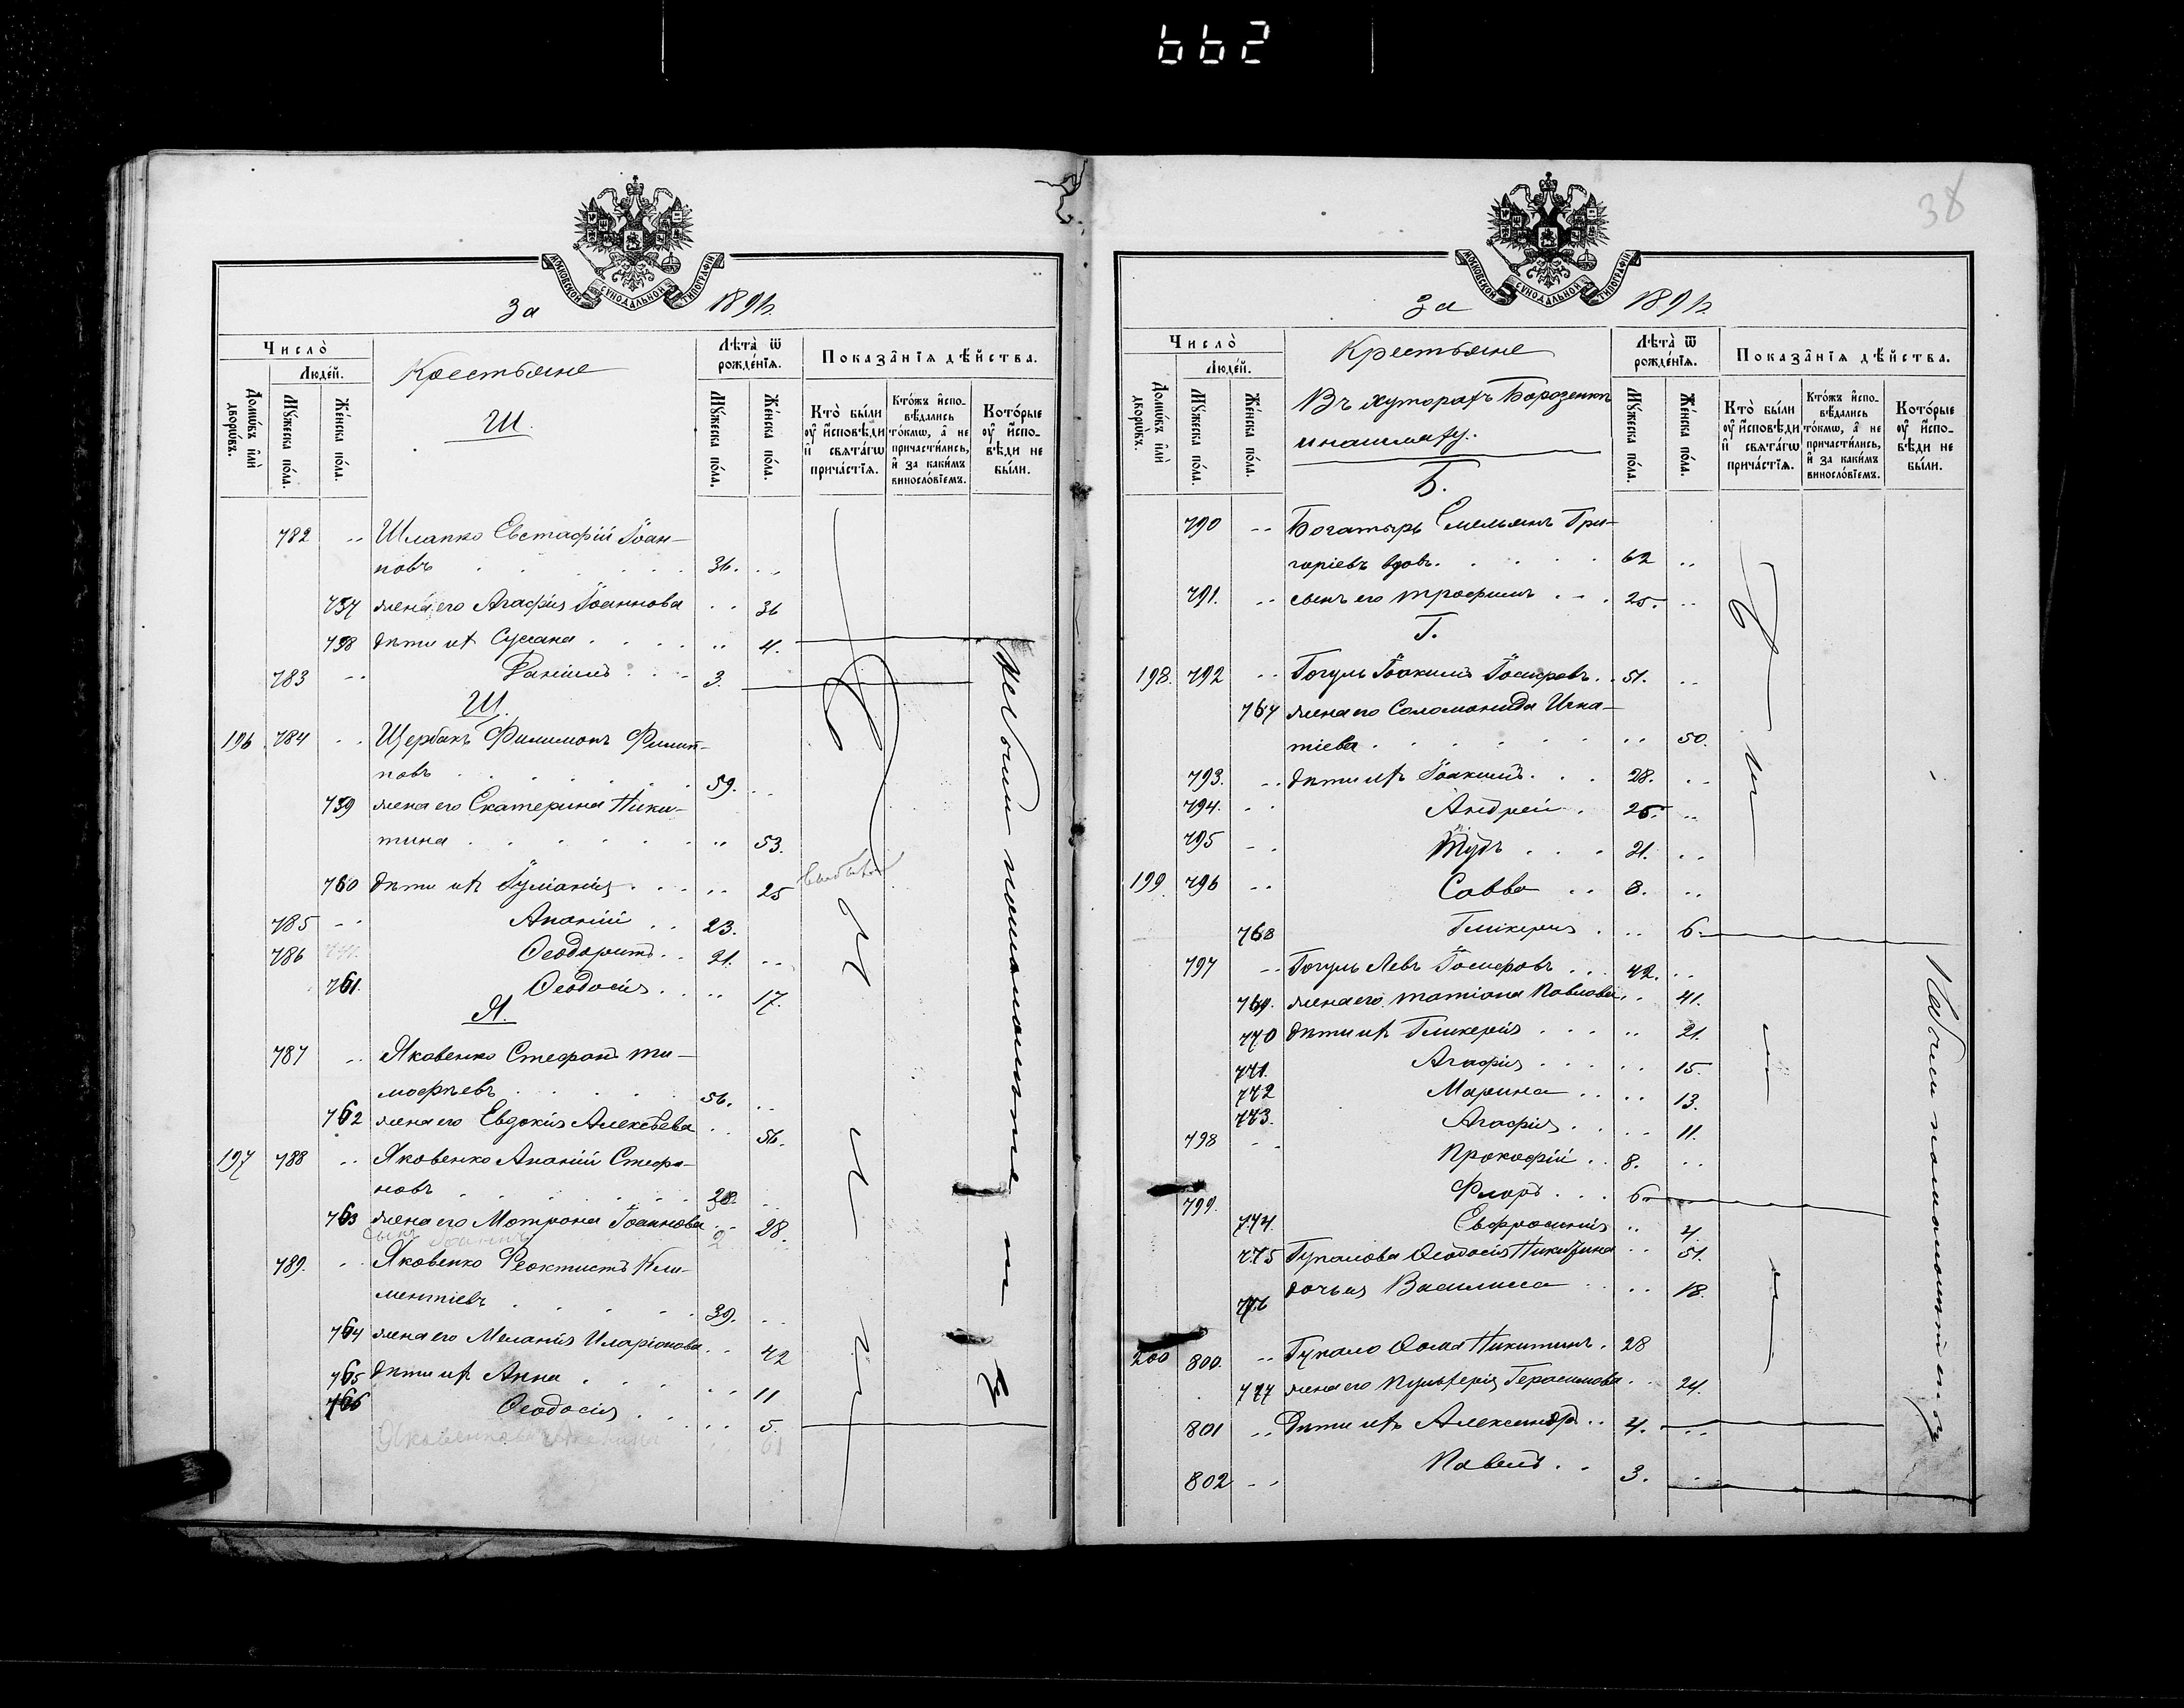 662
МОСКОВСКОЙ СѴНОДАЛЬНОЙ ТИПОГРАФІИ
За 189
Число̀
Людéй.
Домѡ́въ и҆лѝ дворѡ́въ.
Мꙋ́жеска по́ла.
Же́нска по́ла.
Крестьяне
Ш.
Лѣта̀ ѿ рожде́нїѧ.
Мꙋ́жеска по́ла.
Же́нска по́ла.
Показа̑нїѧ дѣ́йства.
Кто̀ бы́ли ᲂу҆ и҆сповѣ́ди и҆ свѧта́гѡ прича́стїѧ.
Кто́жъ и҆спо-вѣ́дались то́кмѡ, а҆ не причасти́лись, и҆ за каки́мъ винослѡ́вїемъ.
Кото́рые ᲂу҆ и҆спо-вѣ́ди не бы́ли.
782 Шлапко Евстафій Іоан-
новъ 36.
757 жена его Агафія Іоаннова 36
758 дѣти ихъ Сусана 4.
783 Даніилъ 3.
Щ.
196 784 Щербакъ Филимонъ Филип-
повъ 59.
759 жена его Екатерина Ники-
тина 53.
760 дѣти ихъ Іуліанія 25
785 Ананій 23.
786 Ѳеодоритъ 21.
761. Ѳеодосія 17.
Я.
787 Яковенко Стефанъ Ти-
мофѣевъ 56.
762 жена его Евдокія Алексѣева 56.
197 788 Яковенко Ананій Стефа-
новъ 28.
763 жена его Мотрона Іоаннова 28.
сынъ Іоаннъ 2
789. Яковенко Феоктистъ Кли-
ментіевъ 39.
764 жена его Меланія Иларіонова 42
765 дѣти ихъ Анна 11
766 Ѳеодосія 5.
61
Небыли
38
МОСКОВСКОЙ СѴНОДАЛЬНОЙ ТИПОГРАФІИ
За 189
Число̀
Людéй.
Домѡ́въ и҆лѝ дворѡ́въ.
Мꙋ́жеска по́ла.
Же́нска по́ла.
Крестьяне
Въ хуторахъ Борозенкѣ
Б.
Лѣта̀ ѿ рожде́нїѧ.
Мꙋ́жеска по́ла.
Же́нска по́ла.
Показа̑нїѧ дѣ́йства.
Кто̀ бы́ли ᲂу҆ и҆сповѣ́ди и҆ свѧта́гѡ прича́стїѧ.
Кто́жъ и҆спо-вѣ́дались то́кмѡ, а҆ не причасти́лись, и҆ за каки́мъ винослѡ́вїемъ.
Кото́рые ᲂу҆ и҆спо-вѣ́ди не бы́ли.
790 Богатырь Емельянъ Гри-
горіевъ вдовъ. 62
791. сынъ его Трофимъ 25.
Г.
198. 792 Гогуль Іоакимъ Іосифовъ 51.
767 жена его Соломонида Игна-
тіева 50.
793. дѣти ихъ Іоакимъ 28.
794. Андрей 25.
795 21.
199 796 Савва 8.
768 Гликерія 6.
797 Гогуль Левъ Іосифовъ 42.
769. жена его Татіана Павлова 41.
770 дѣти ихъ Гликерія 21.
771. Агафія 15.
772 Марина 13.
773. Агафія 11.
798 Прокофій 8.
799. Флоръ 6
774. Евфросинія 4.
775 Гукалова Ѳеодосія Никитина 51.
776 дочь ея Василиса 18.
200 800. Гукало Ѳома Никитинъ 28
777 жена его Пульхерія Герасимова 24.
801 Дѣти ихъ Александръ 4.
802 Павелъ 3.
Небыли